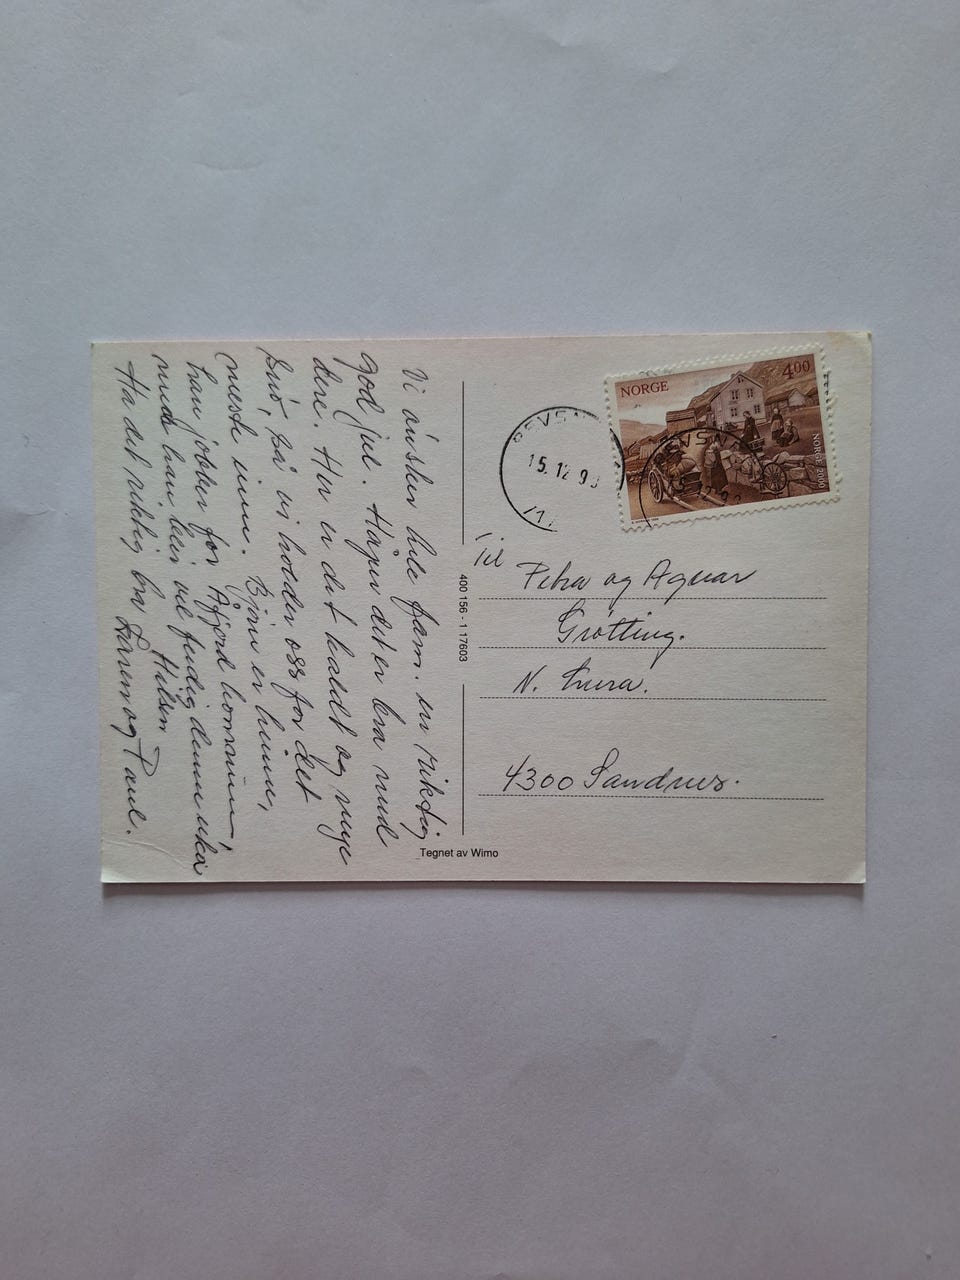 Vi ønsker hele fam. en riktig
god jul. Håper det er bra med
dere. Her er det kaldt og mye
snø, så vi holder oss for det
meste inne. Bjørn er hjemme,
han jobber for Åfjord kommune,
men han blir vel ferdig denne uka
Hilsen
Ha det riktig bra Karen og Paul.
NORGE
4.00
NORGE 2000
15.12.9
Til
Petra og Agnar
Grøtting.
N. Lura.
4300 Sandnes.
400 156 - 1 17603
Tegnet av Wimo